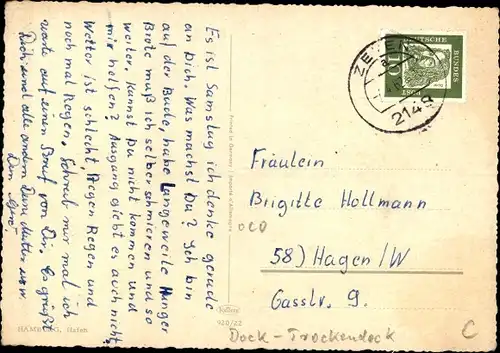 Es ist Samstag ich denke gerade
an Dich. Was machst Du? Ich bin
auf der Bude, habe Langeweile Hunger
Brote muß ich selber schmieren und so
weiter. Kannst Du nicht kommen und
mir helfen? Ausgang giebt es auch nicht,
Wetter ist schlecht, Regen Regen und
noch mal Regen. Schreib mir mal ich
warte auf einen Brief von Dir. Es grüßt
Dich und alle andern Deine Mutter usw.
Dein
HAMBURG, Hafen
Printed in Germany / Imprimé d'Allemagne
Krüger
920/22
ZEVEN
2148
DEUTSCHE
BUNDES
10
Fräulein
Brigitte Hollmann
58) Hagen/W
Gasstr. 9.
Dock - Trockendock
C